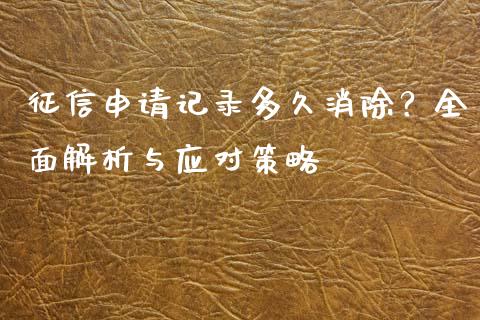 征信申请记录多久消除？全
面解析与应对策略